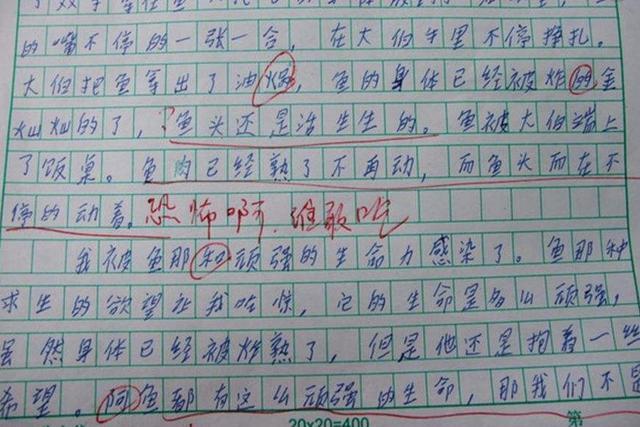 的嘴不停的一张一合，在大伯手里不停挣扎。
大伯把鱼拿出了油锅，鱼的身体已经被炸的金
灿灿的了，鱼头还是活生生的。鱼被大伯端上
了饭桌。鱼肉已经熟了不再动，而鱼头而在不
停的动着。恐怖啊，谁敢吃
我被鱼那和顽强的生命力感染了。鱼那种
求生的欲望让我吃惊，它的生命是多么顽强，
虽然身体已经被炸熟了，但是他还是抱着一丝
希望。阿鱼都有这么顽强的生命，那我们不是
20×20=400
第